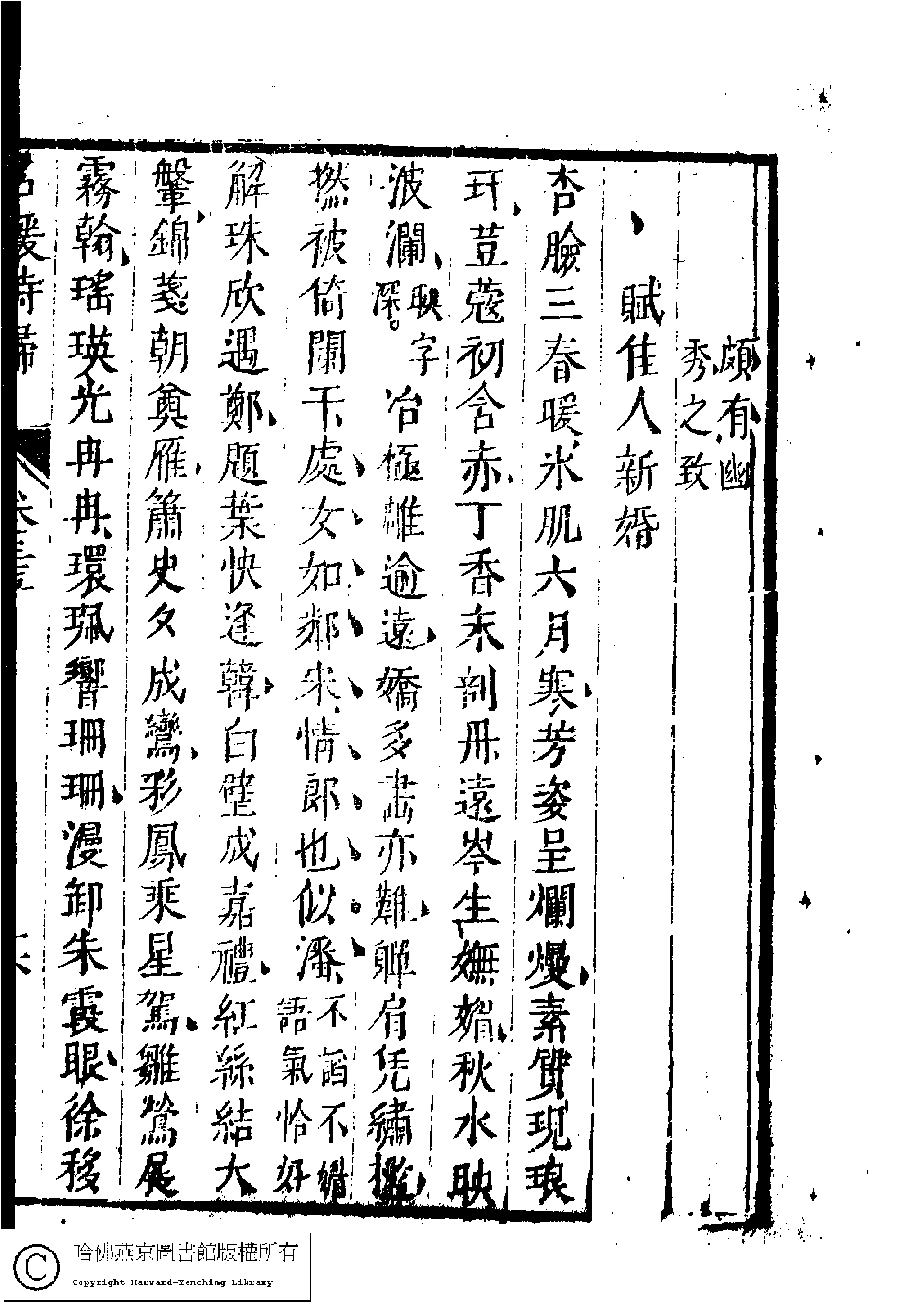 頗有幽
秀之致
賦佳人新婚
杏臉三春暖氷肌六月寒芳姿呈爛熳素質現琅
玕荳蔻初含赤丁香未剖丹遠岑生嫵媚秋水映
波瀾
映字
深
冶極雖逾遠嬌多畫亦難嚲肩凭繡檻
撚被倚闌干處女如鄰宋情郎也似潘
不諧不婿
語氣恰好
解珠欣遇鄭題葉快逢韓白璧成嘉禮紅絲結大
鞶錦箋朝奠雁簫史夕成鸞彩鳳乘星駕雛鶯展
霧翰瑤瑛光冉冉環珮響珊珊漫卸朱霞帔徐移
名媛詩歸
卷三
哈佛燕京圖書館版權所有
Copyright Harvard-Yenching Library